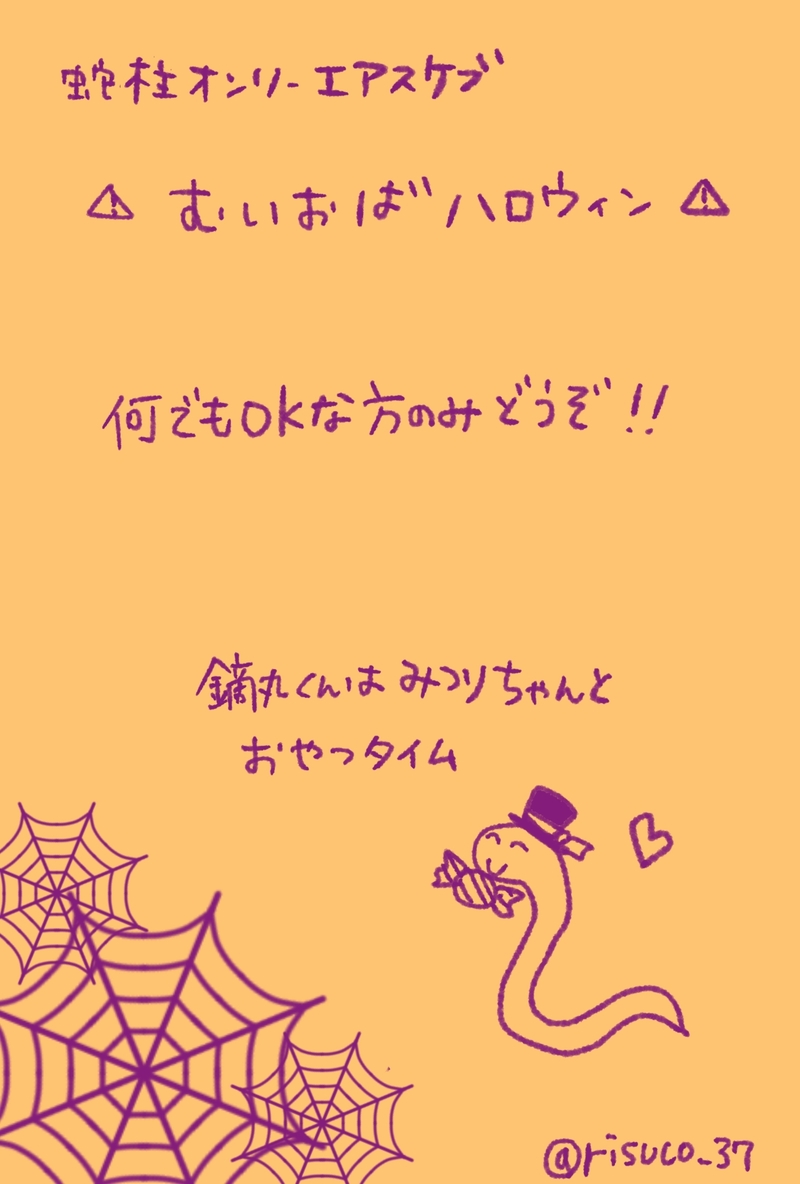 蛇柱オンリーエアスケブ
⚠ むいおばハロウィン ⚠
何でもOKな方のみどうぞ!!
鏑丸くんはみつりちゃんと
おやつタイム
@risuco_37